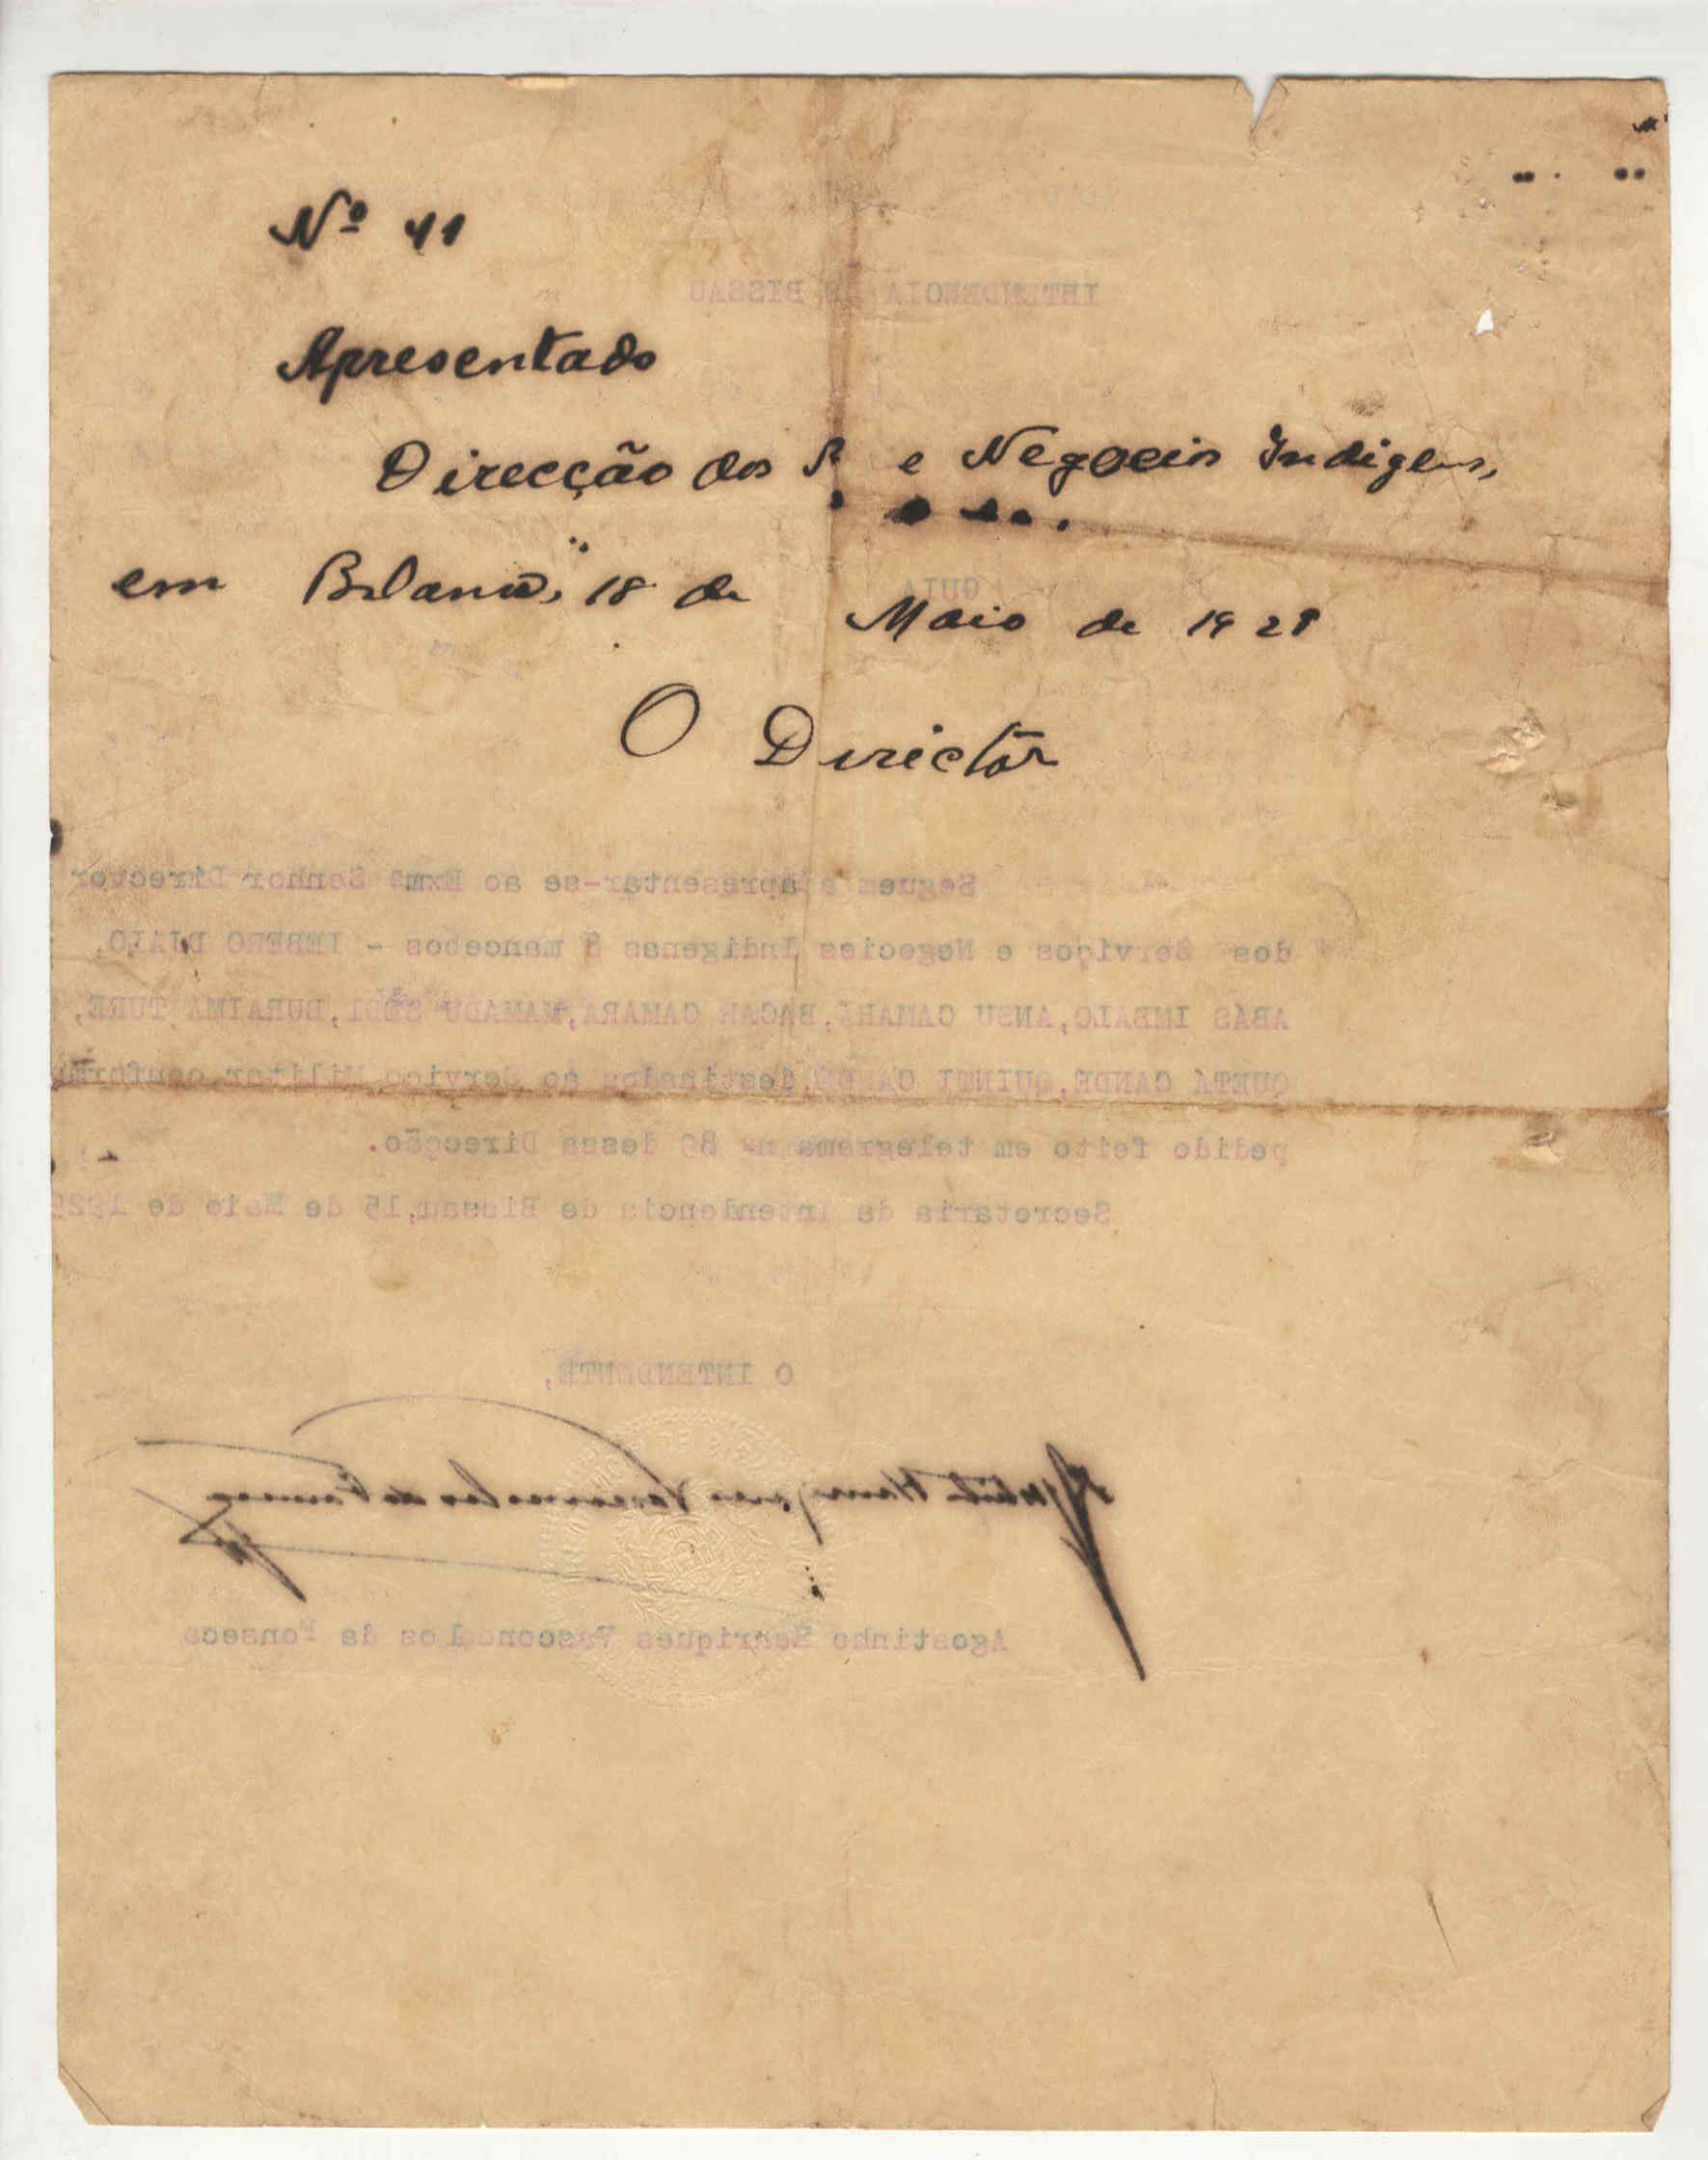 Nº 41
Apresentado
Direcção dos S e Negocios Indigenas,
em Bolama, 18 de Maio de 1929
O Director
INTENDENCIA DE BISSAU
GUIA
Seguem a apresentar-se ao Exmº Senhor Director
dos Serviços e Negocios Indigenas 8 mancebos - IEMBERO DJALO,
ABÁS IMBALO, ANSU CAMARÁ, BACAR CAMARA, MAMADU SEIDI, BURAIMA TURE,
QUETA CANDE, QUINTI CANDE, destinados ao Serviço Militar, conforme
pedido feito em telegrama nº 89 dessa Direcção.
Secretaria da Intendencia de Bissau, 15 de Maio de 1929
O INTENDENTE,
Agostinho Henriques Vasconcelos da Fonseca
Agostinho Henriques Vasconcelos da Fonseca